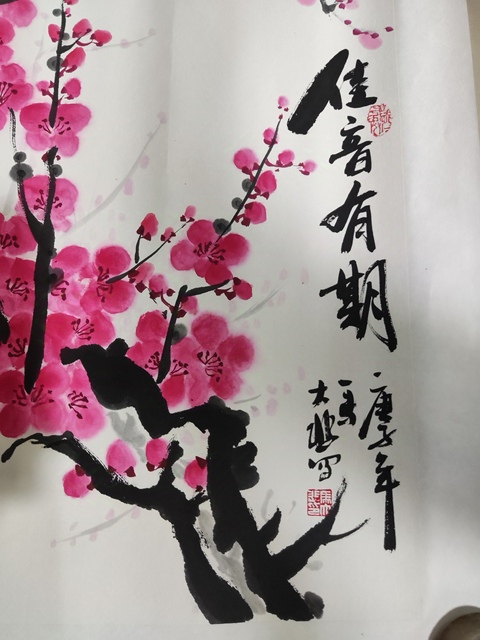 佳音有期
庚子年
大
写